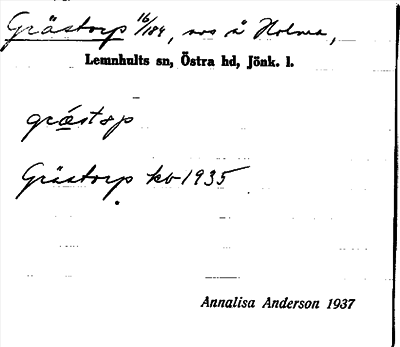 Grästorp 16/184, sos å Holma,
Lemnhults sn, Östra hd, Jönk. l.
græ̀stɷp
Grästorp kb 1935
Annalisa Anderson 1937